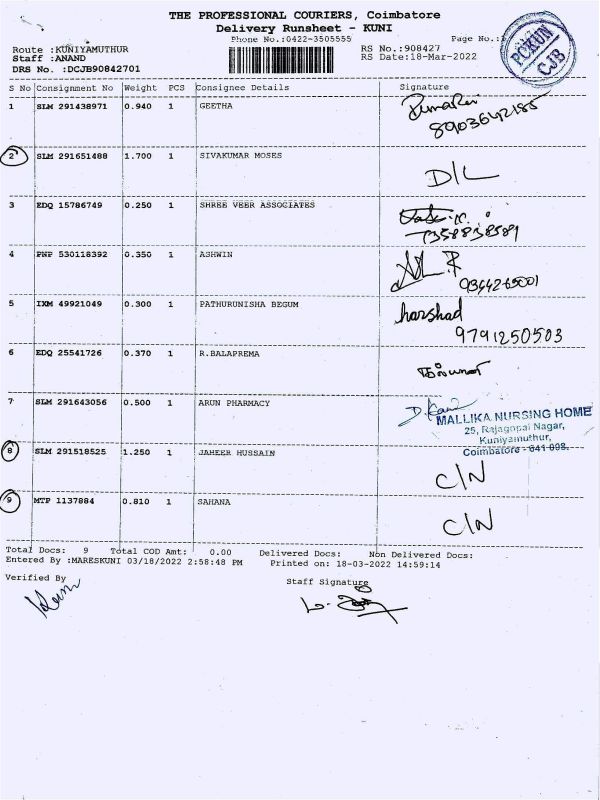 THE PROFESSIONAL COURIERS, Coimbatore
Delivery Runsheet - KUNI
Phone No.:0422-3505555 Page No.:
Route :KUNIYAMUTHUR RS No.:908427
Staff :ANAND RS Date:18-Mar-2022
DRS No. :DCJB90842701
PCKUN
CJB
S No Consignment No Weight PCS Consignee Details Signature
1 SLM 291438971 0.940 1 GEETHA
8903642185
2 SLM 291651488 1.700 1 SIVAKUMAR MOSES
D/L
3 EDQ 15786749 0.250 1 SHREE VEER ASSOCIATES
7358838589
4 PNP 530118392 0.350 1 ASHWIN
9344265001
5 IXM 49921049 0.300 1 PATHURUNISHA BEGUM harshad
9791250503
6 EDQ 25541726 0.370 1 R.BALAPREMA
7 SLM 291643056 0.500 1 ARUN PHARMACY
MALLIKA NURSING HOME
25, Rajagopal Nagar,
Kuniyamuthur,
Coimbatore - 641 008.
8 SLM 291518525 1.250 1 JAHEER HUSSAIN
C/N
9 MTP 1137884 0.810 1 SAHANA
C/N
Total Docs: 9 Total COD Amt: 0.00 Delivered Docs: Non Delivered Docs:
Entered By :MARESKUNI 03/18/2022 2:58:48 PM Printed on: 18-03-2022 14:59:14
Verified By Staff Signature